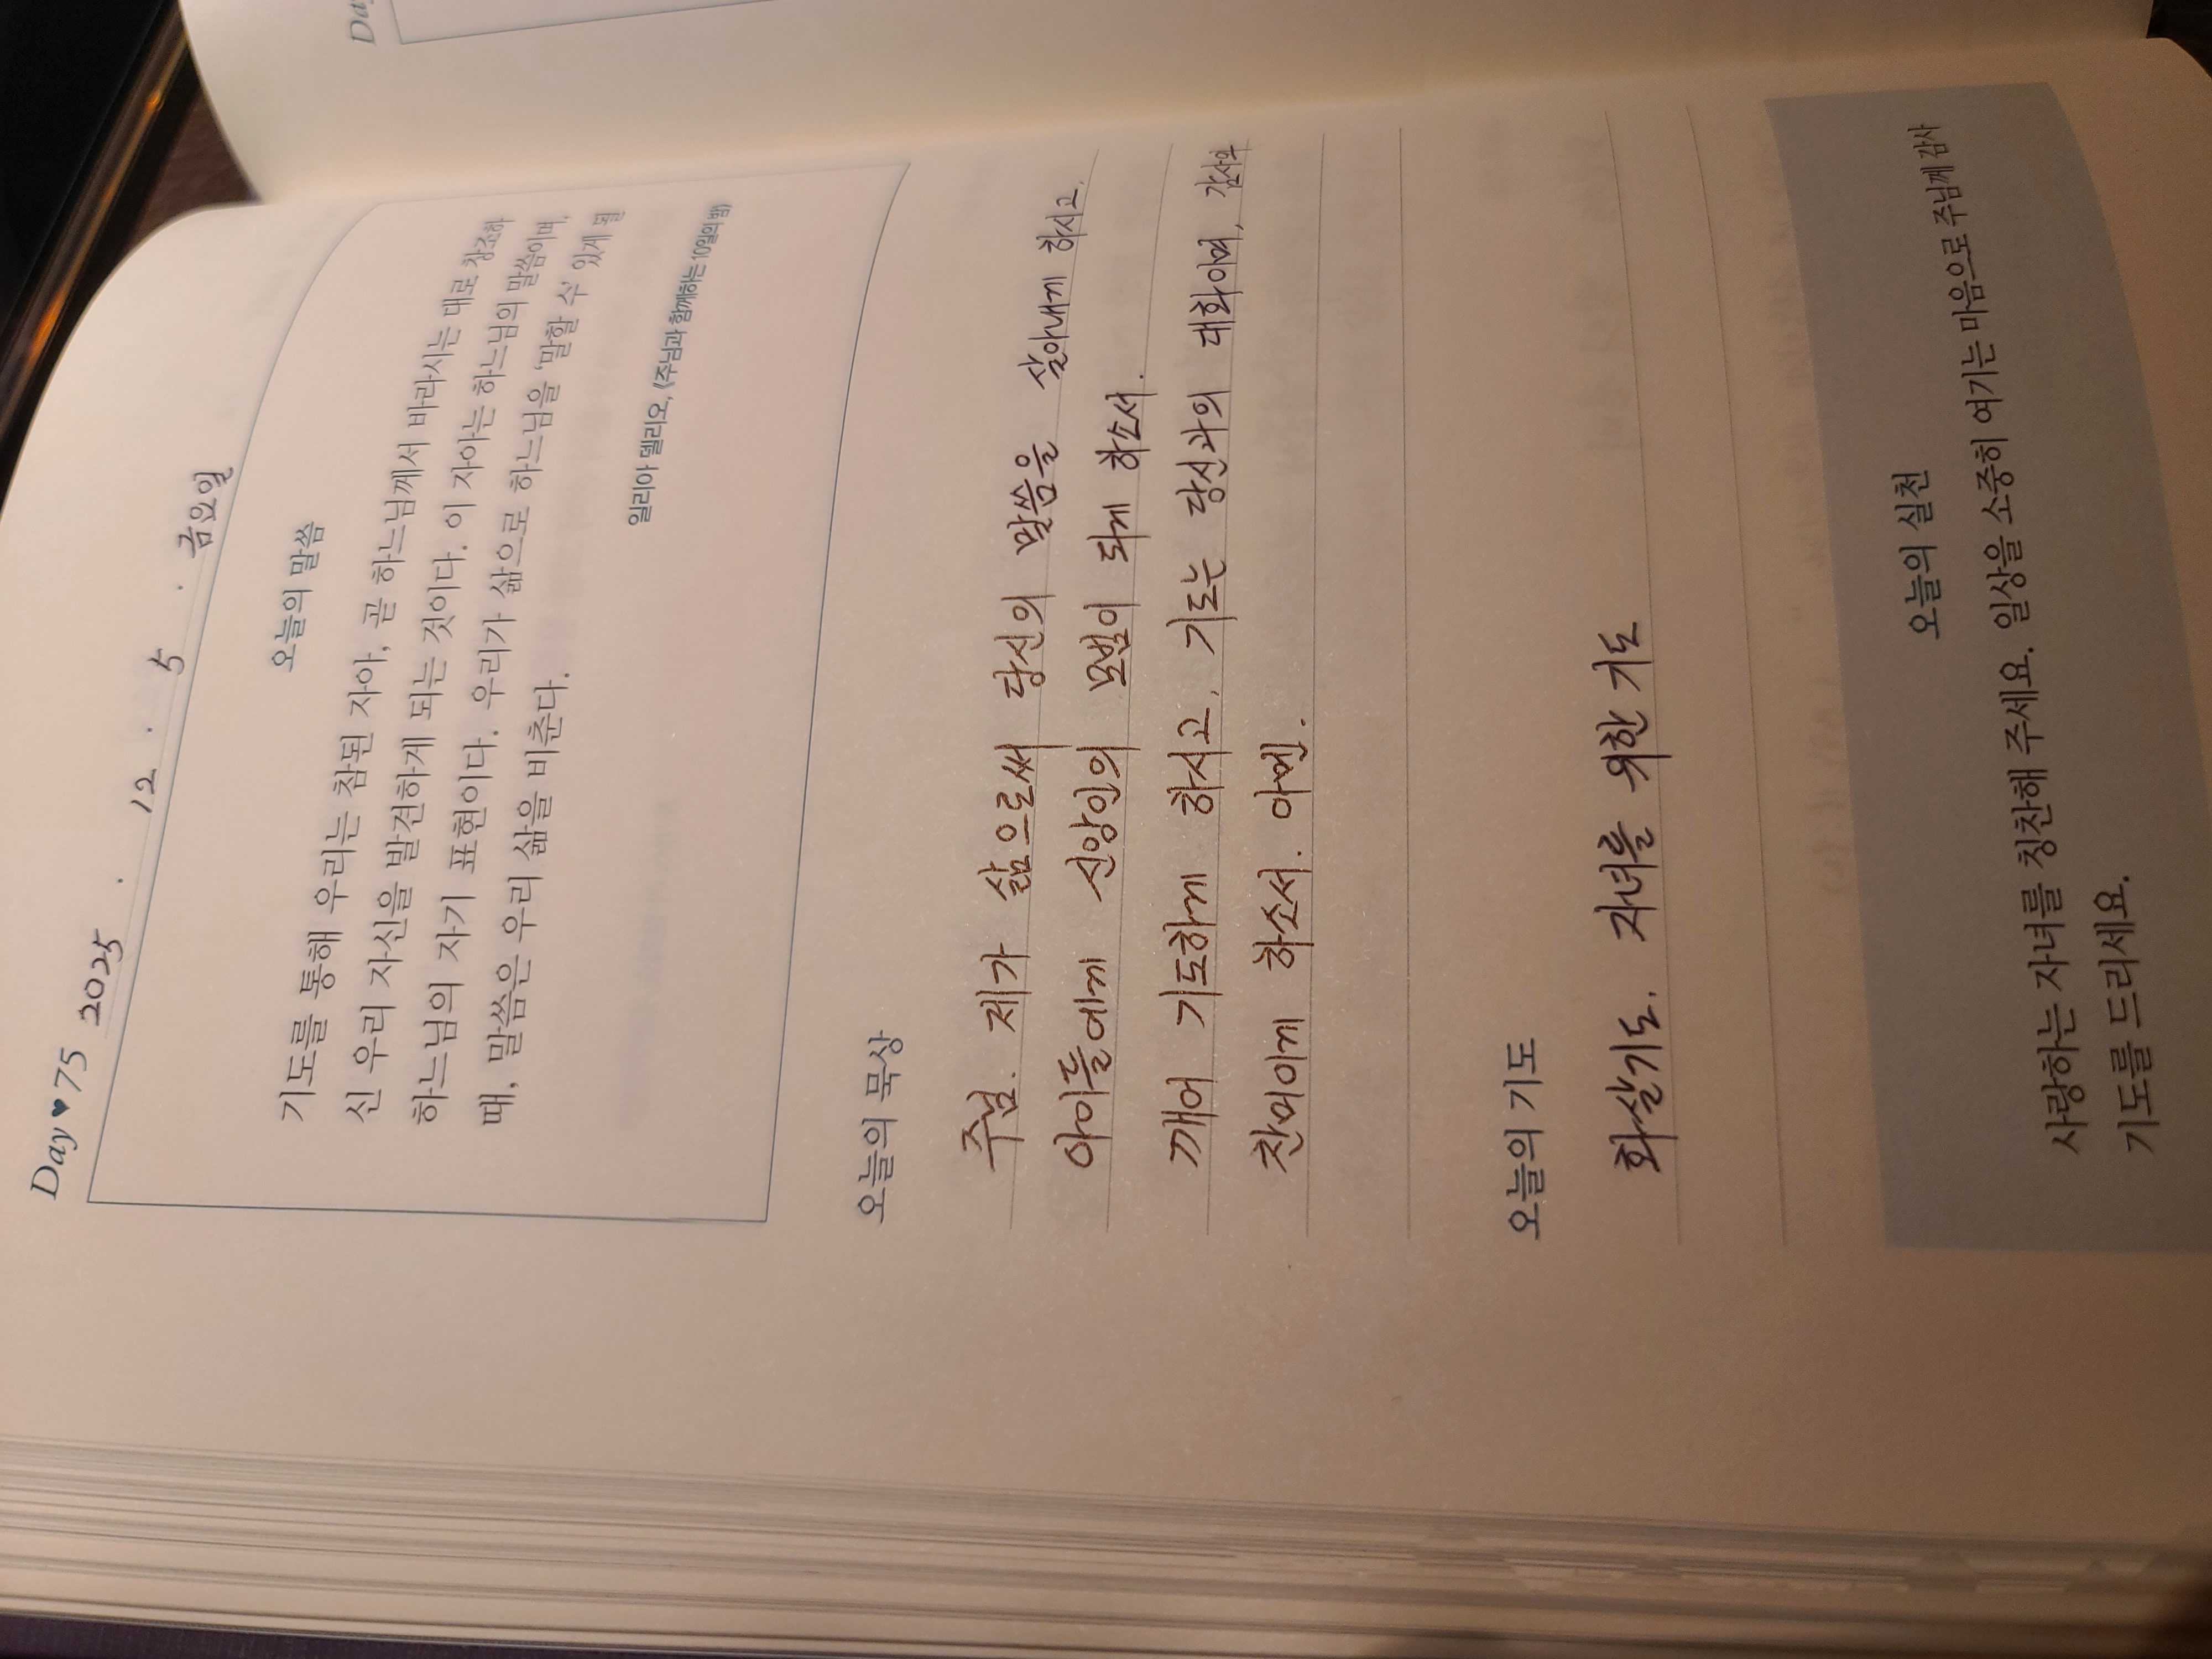 Day ♥ 75
2025 . 12 . 5 . 금요일
오늘의 말씀
기도를 통해 우리는 참된 자아, 곧 하느님께서 바라시는 대로 창조하
신 우리 자신을 발견하게 되는 것이다. 이 자아는 하느님의 말씀이며,
하느님의 자기 표현이다. 우리가 삶으로 하느님을 ‘말할 수’ 있게 될
때, 말씀은 우리 삶을 비춘다.
일리아 델리오, 《주님과 함께하는 10일의 밤》
오늘의 묵상
주님. 제가 삶으로써 당신의 말씀을 살아내게 하시고,
아이들에게 신앙인의 모범이 되게 하소서.
깨어 기도하게 하시고, 기도는 당신과의 대화이며, 감사와
찬미이게 하소서. 아멘.
오늘의 기도
화살기도, 자녀를 위한 기도
오늘의 실천
사랑하는 자녀를 칭찬해 주세요. 일상을 소중히 여기는 마음으로 주님께 감사
기도를 드리세요.